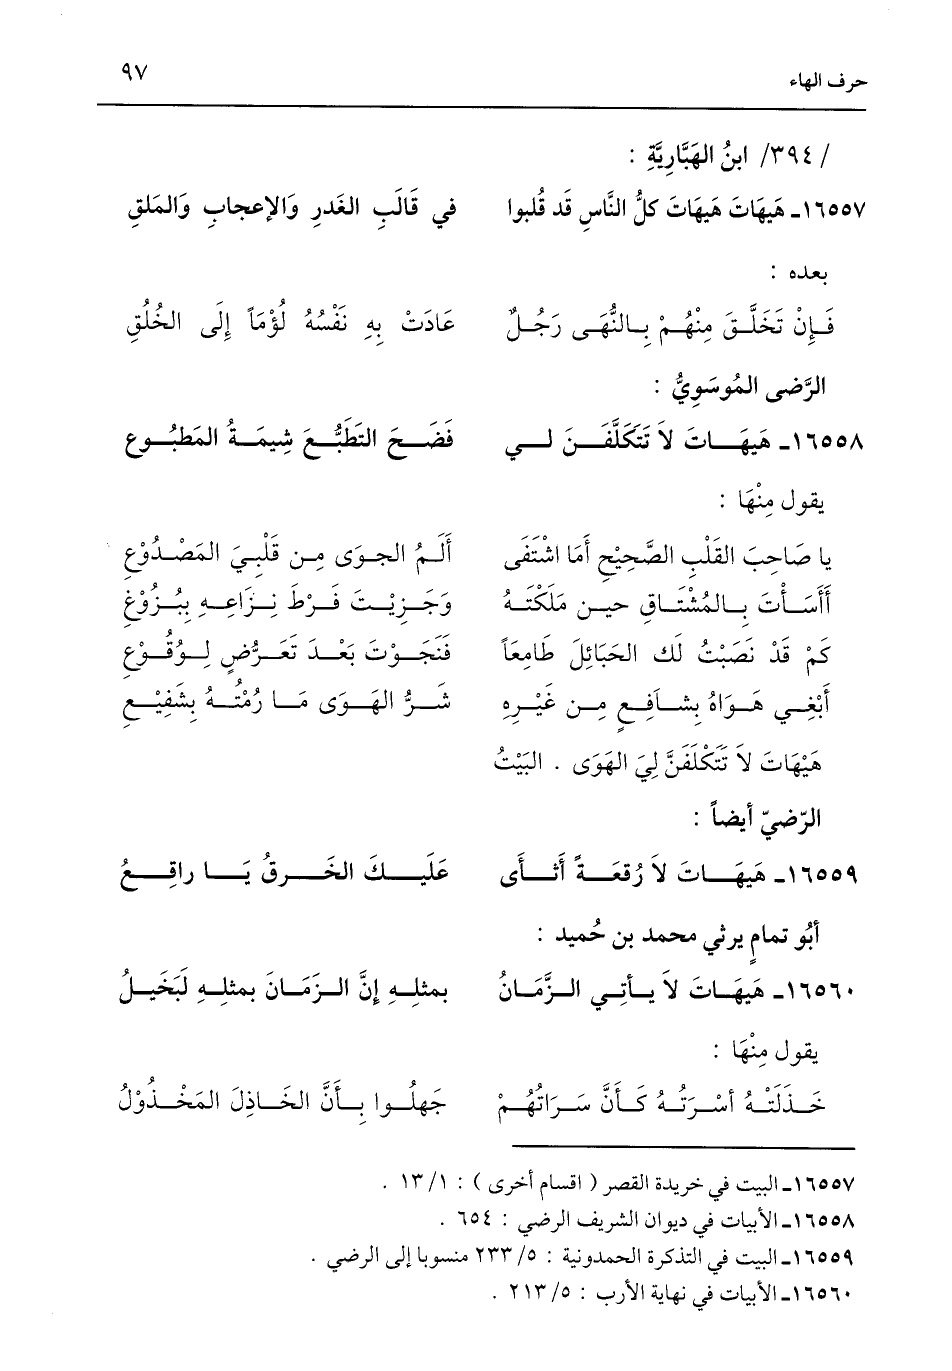 حرف الهاء ٩٧
/ ٣٩٤/ ابنُ الهَبَّارِيَّةِ :
١٦٥٥٧ـ هَيهَاتَ هَيهَاتَ كلُّ النَّاسِ قَد قُلبوا في قَالَبِ الغَدرِ وَالإعجابِ وَالمَلقِ
بعده :
فَإِنْ تَخَلَّقَ مِنْهُمْ بِالنُّهَى رَجُلٌ عَادَتْ بِهِ نَفْسُهُ لُؤْمَاً إِلَى الخُلُقِ
الرَّضى المُوسَوِيُّ :
١٦٥٥٨ـ هَيهَاتَ لاَ تَتَكَلَّفَنَ لي فَضَحَ التَطَبُّعَ شِيمَةُ المَطبُوع
يقول مِنْهَا :
يا صَاحِبَ القَلْبِ الصَّحِيْحِ أَمَا اشْتَفَى أَلَمُ الجوَى مِن قَلْبِيَ المَصْدُوْعِ
أَأَسَأْتَ بِالمُشْتَاقِ حين مَلَكْتَهُ وَجَزِيْتَ فَرْطَ نِزَاعِهِ بِبُزُوْغِ
كَمْ قَدْ نَصَبْتُ لَك الحَبَائِلَ طَامِعَاً فَنَجَوْتَ بَعْدَ تَعَرُّضٍ لِوُقُوْعِ
أَبْغِي هَوَاهُ بِشَافِعٍ مِن غَيْرِهِ شَرُّ الهَوَى مَا رُمْتُهُ بِشَفِيْعِ
هَيْهَاتَ لاَ تَتَكْلَفَنَّ لِيَ الهَوَى . البَيْتُ
الرّضيّ أيضاً :
١٦٥٥٩ـ هَيهَات لاَ رُقعَةً أَثأَى عَلَيكَ الخَرقُ يَا راقِعُ
أبُو تمامٍ يرثي محمد بن حُميد :
١٦٥٦٠ـ هَيهَاتَ لاَ يأتي الزَّمَانُ بمثلِهِ إنَّ الزَمَانَ بمثلِهِ لَبَخَيلُ
يقول مِنْهَا :
خَذَلَتْهُ أسْرَتُهُ كَأَنَّ سَرَاتَهُمْ جَهلُوا بِأَنَّ الخَاذِلَ المَخْذُوْلُ
١٦٥٥٧ـ البيت في خريدة القصر ( اقسام أخرى ) : ١٣/١ .
١٦٥٥٨ـ الأبيات في ديوان الشريف الرضي : ٦٥٤ .
١٦٥٥٩ـ البيت في التذكرة الحمدونية : ٢٣٣/٥ منسوبا إلى الرضي .
١٦٥٦٠ـ الأبيات في نهاية الأرب : ٢١٣/٥ .